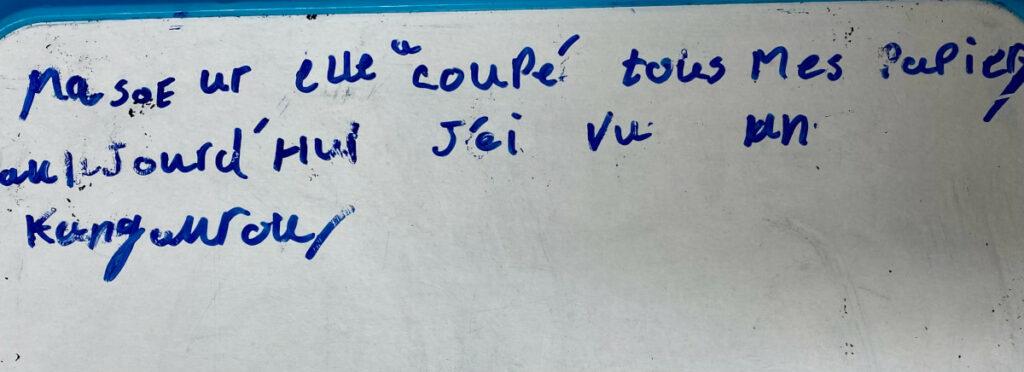 Ma soEur elle a coupé tous Mes papiers/
aujourd'Hui J'ai vu un
Kangourou/